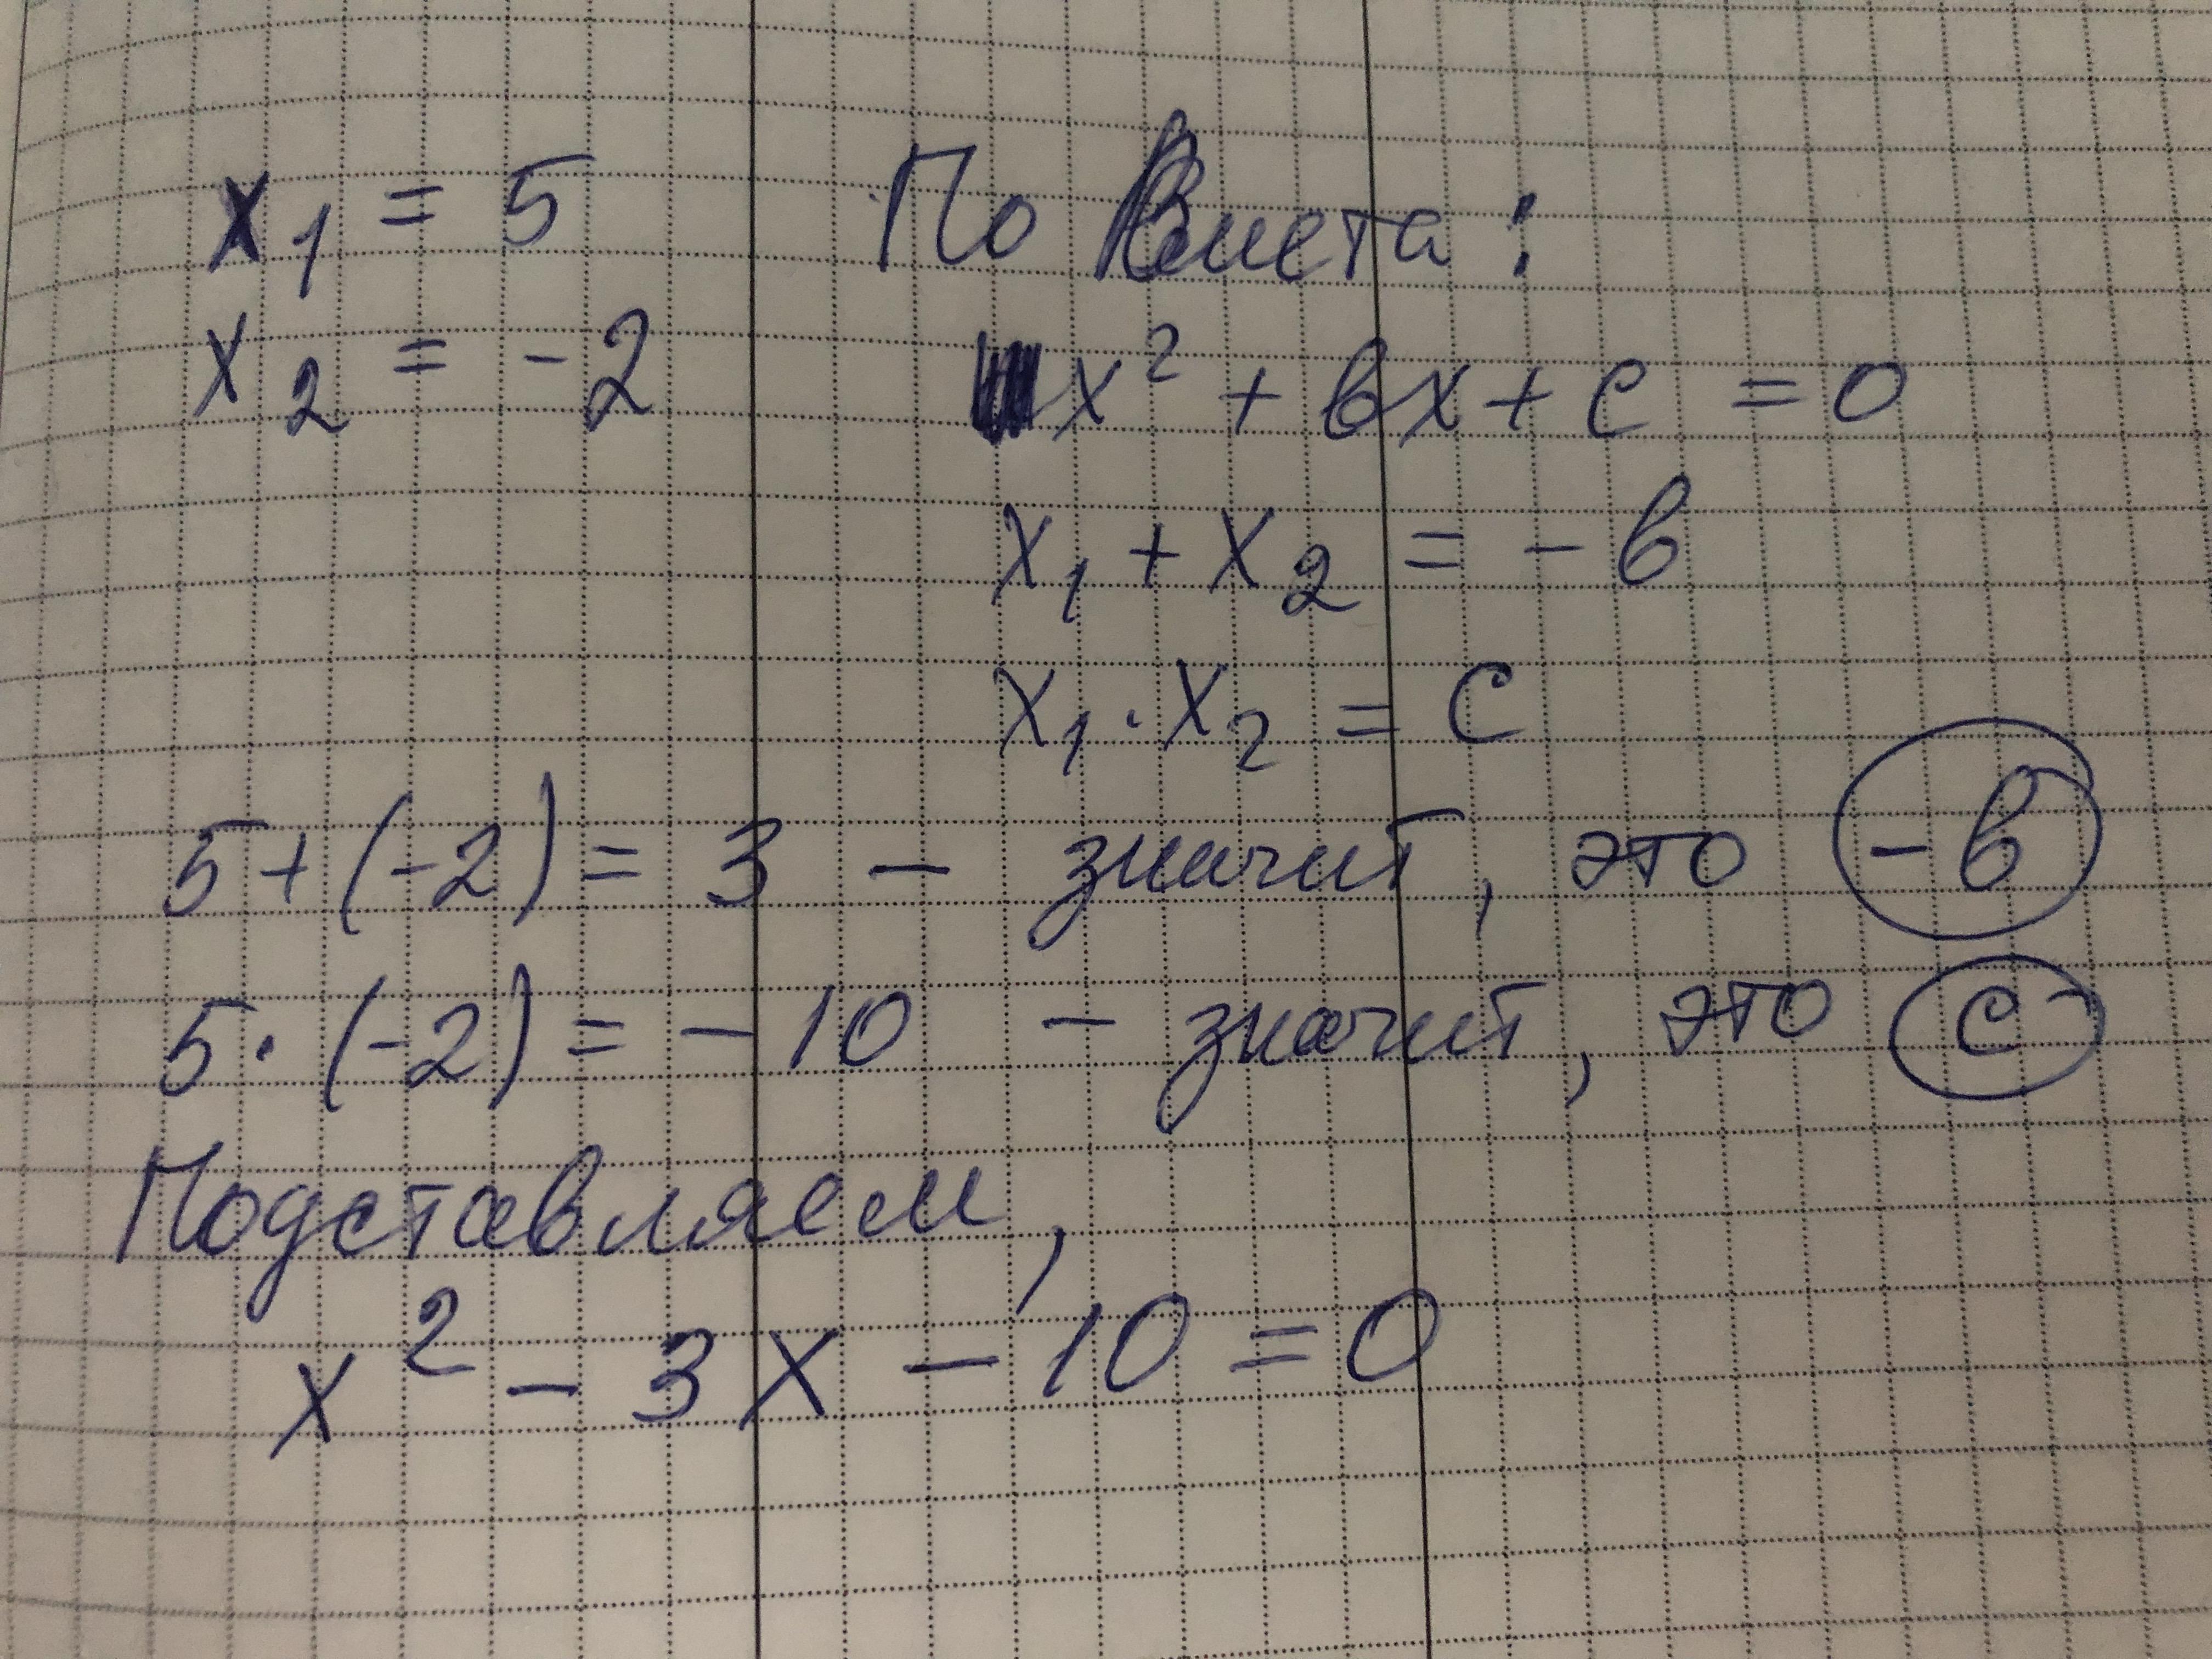 x₁ = 5
x₂ = -2
По Виета:
x² + bx + c = 0
x₁ + x₂ = -b
x₁ · x₂ = c
5 + (-2) = 3 - значит, это -b
5 · (-2) = -10 - значит, это c
Подставляем,
x² - 3x - 10 = 0